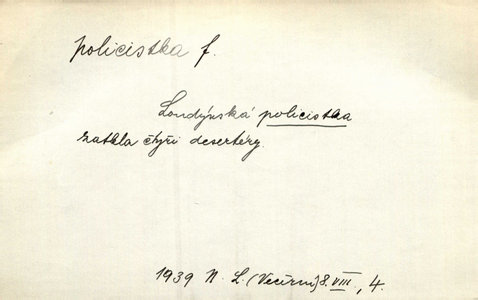 policistka f.
Londýnská policistka
zatkla čtyři desertéry.
1939 N. L. (Večerní) 8. VIII, 4.